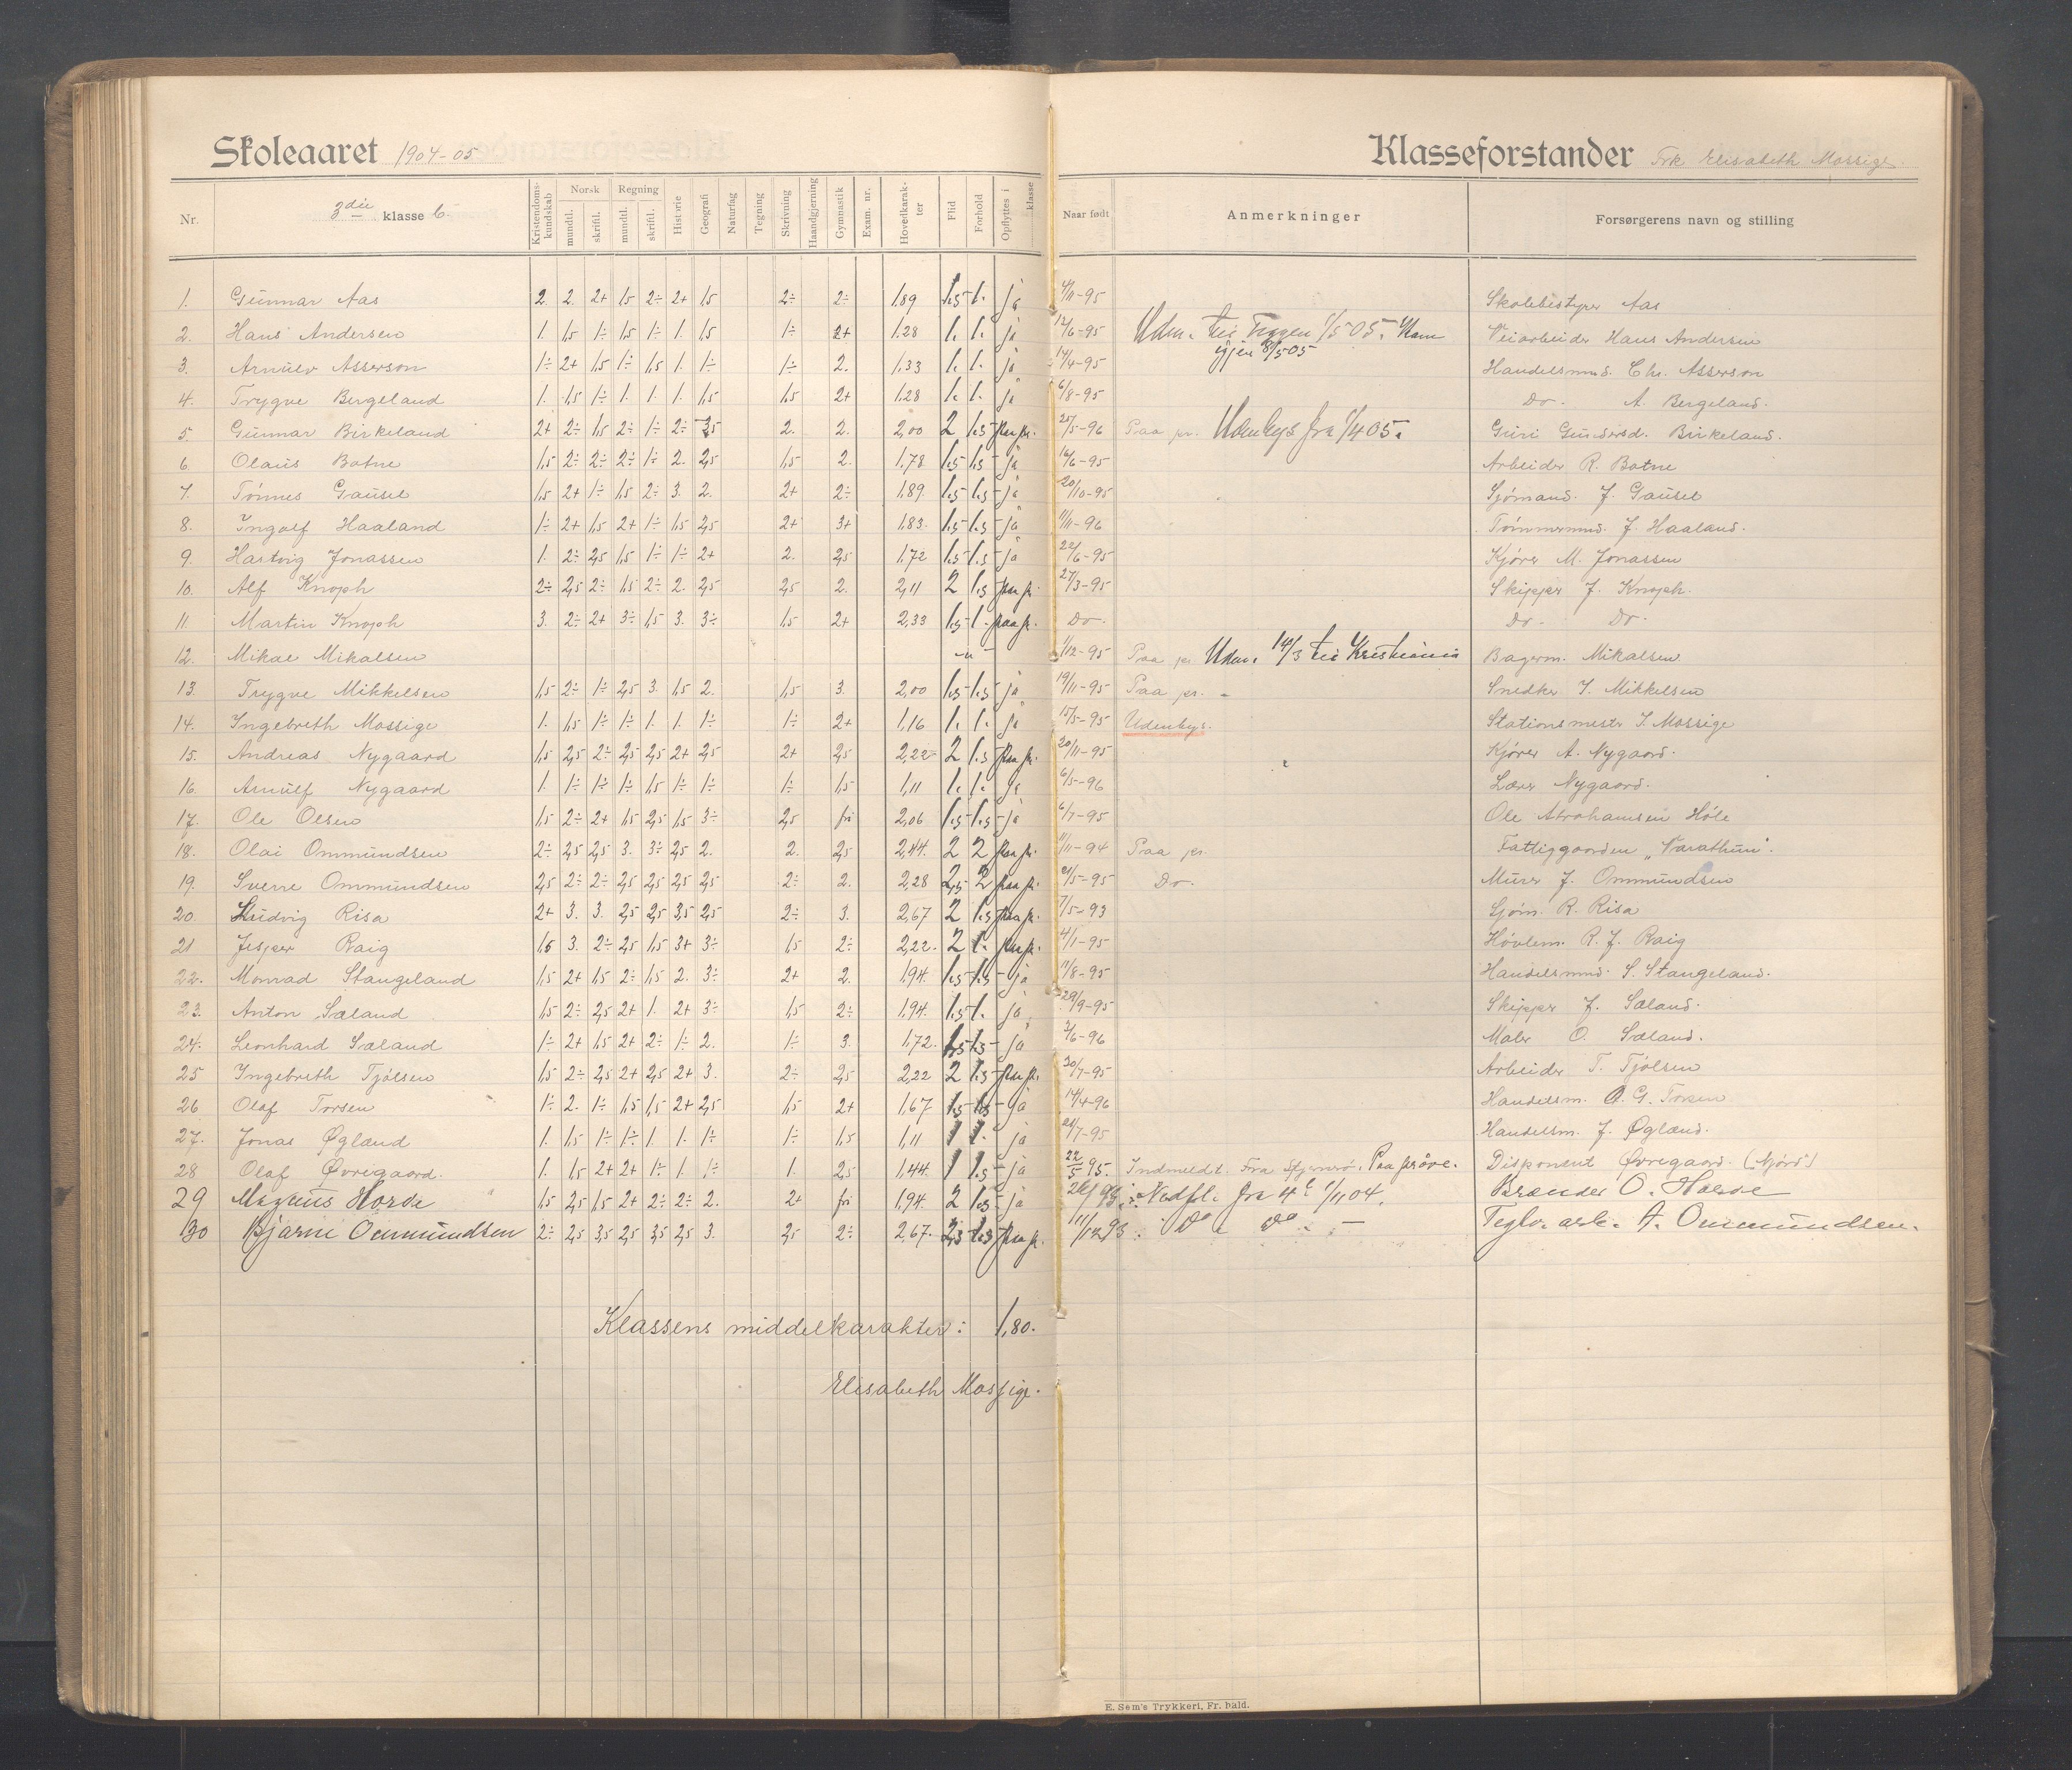 Skoleaaret 1904-05
Klasseforstander Frk Elisabeth Mossige
Nr. 3die klasse b. Kristendomskundskab Norsk mundtl. skriftl. Regning mundtl. skriftl. Historie Geografi Naturfag Tegning Skrivning Haandgjerning Gymnastik Exam. nr. Hovedkarakter Flid Forhold Opflyttes i klasse Naar født Anmerkninger Forsørgerens navn og stilling
1. Gunnar Aas 2. 2. 2+ 1,5 2÷ 2+ 1,5 2÷ 2÷ 1,89 1.5 1. ja 4/11-95 Skolebestyrer Aas
2. Hans Andersen 1. 1,5 1÷ 1,5 1÷ 1. 1,5 1÷ 2+ 1.28 1. 1. ja 12/6-95 Udm. til 1/5 05. Kom igjen 8/5 05 Veiarbeider Hans Andersen
3. Arnulv Asserson 1÷ 2+ 1,5 1÷ 1,5 1. 1÷ 1÷ 2. 1,33 1. 1. ja 14/4-95 Handelsmd. Chr. Asserson
4. Trygve Bergeland 1. 1,5 1÷ 1. 1. 1. 1,5 1,5 2+ 1.28 1. 1. ja 6/8-95 Do. A. Bergeland.
5. Gunnar Birkeland 2+ 2÷ 1,5 2÷ 1÷ 2÷ 3,5 2. 2. 2,00 2 1.5 paa pr. 25/5-96 Paa pr. Udenbys fra 1/4 05. Guri Gundersd. Birkeland.
6. Olaus Botne 1,5 2÷ 2÷ 2÷ 1÷ 2. 2,5 1,5 2. 1.78 1.5 1.5 ja 16/6-95 Arbeider R. Botne
7. Tönnes Gausel 1,5 2+ 1÷ 1,5 2÷ 3. 2. 2+ 2÷ 1.89 1.5 1.5 ja 20/10-95 Sjömand. J. Gausel
8. Ingolf Haaland 1÷ 2+ 1,5 2+ 1÷ 1,5 2,5 2+ 3+ 1,83. 1.5 1.5 ja 11/11-96 Tömmermd. J. Haaland.
9. Hartvig Jonassen 1. 2÷ 2,5 1,5 1÷ 1÷ 2+ 2. 2,5 1,72 1.5 1.5 ja 22/6-95 Kjörer M. Jonassen
10. Alf Knoph 2÷ 2,5 2÷ 1,5 2÷ 2. 2,5 2,5 2. 2,11 2 1.5 paa pr. 27/3-95 Skipper J. Knoph.
11. Martin Knoph 3. 2÷ 2+ 3÷ 1,5 3. 3÷ 1,5 2+ 2,33 1.5 1. paa pr. Do. Do. Do.
12. Mikal Mikalsen -"- 1/12-95 Paa pr. Udm. 14/3 til Kristiania Bagerm. Mikalsen
13. Trygve Mikkelsen 1,5 2÷ 1÷ 2,5 3. 1,5 2. 1,5 3. 2,00 1.5 1.5 ja 19/11-95 Paa pr. Snedker T. Mikkelsen
14. Ingebreth Mossige 1. 1,5 1÷ 1÷ 1. 1. 1÷ 1÷ 2+ 1,16 1. 1. ja 15/5-95 Udenbys. Stationsmestr T. Mossige
15. Andreas Nygaard 1,5 2,5 2÷ 2,5 2,5 2+ 2,5 2+ 2,5 2,22 2 1.5 paa pr. 20/11-95 Kjörer A. Nygaard.
16. Arnulf Nygaard 1. 1÷ 1÷ 1÷ 1,5 1÷ 1÷ 1÷ 1,5 1,11 1. 1. ja 6/5-96 Lærer Nygaard.
17. Ole Olsen 1,5 2÷ 2+ 1,5 2,5 1,5 3÷ 2,5 fri 2,06 1.5 1.5 ja 6/7-95 Ole Abrahamsen Høle
18. Olai Ommundsen 2÷ 2,5 2,5 3. 3÷ 2,5 2. 2. 2,5 2,44. 2 2 paa pr. 11/11-94 Paa pr. Fattiggaarden "Varathun".
19. Sverre Ommundsen 2,5 2÷ 2÷ 2,5 2,5 2,5 2,5 2÷ 2. 2,28 2,5 2 paa pr. 21/5-95 Do. Murer J. Ommundsen
20. Ludvig Risa 2+ 3. 3. 2,5 2,5 3,5 2,5 2÷ 3. 2,67 2 1.5 paa pr. 7/5-93 Sjöm. R. Risa
21 Jesper Raig 1,5 3. 2÷ 2,5 1,5 3+ 3÷ 1,5 2÷ 2,22. 2 1. paa pr. 4/1-95 Hövlem. R. J. Raig
22. Monrad Stangeland 1,5 2+ 1,5 2÷ 1,5 2. 3÷ 2+ 2. 1,94. 1.5 1.5 ja 11/8-95 Handelsmd. S. Stangeland.
23. Anton Sæland 1,5 2÷ 2,5 2+ 1. 2+ 3÷ 1,5 2÷ 1,94. 1.5 1. ja 29/9-95 Skipper J. Sæland.
24. Leonhard Sæland 1÷ 2+ 1,5 2+ 2÷ 1÷ 2. 1÷ 3. 1,72. 1.5 1.5 ja 3/6-96 Maler O. Sæland.
25 Ingebreth Tjölsen 1,5 2÷ 2,5 2+ 2,5 2+ 3. 2÷ 2,5 2,22 2 1.5 paa pr. 30/7-95 Arbeider T. Tjölsen
26 Olaf Torsen 1÷ 2. 1÷ 1,5 1,5 2+ 2,5 1,5 2+ 1,67 1.5 1.5 ja 14/4-96 Handelsm. O. G. Torsen
27. Jonas Øglænd 1. 1,5 1÷ 1÷ 1. 1. 1÷ 1÷ 1,5 1,11 1 1. ja 21/7-95 Handelsm. J. Øglænd.
28 Olaf Øvregaard. 1. 1,5 2+ 2+ 1÷ 1. 1÷ 1. 2,5 1,44. 1 1.5 ja 22/5 95. Indmeldt. Fra Stjernerö. Paa pröve. Disponent Øvregaard. (Njörd)
29 Magnus Horda 1,5 2,5 1,5 2+ 2÷ 2÷ 2. 2+ fri 1,94. 2 1.5 ja Nedfl. fra 4de 1/11 04. Brænder O. Horda
30 Bjarne Ommundsen 2÷ 2,5 3,5 2,5 3,5 2,5 3. 2,5 2÷ 2,67. 2,5 1.5 paa pr. 11/12 93. Do Do - Teglv. arb. A. Ommundsen.
Klassens middelkarakter: 1,80.
Elisabeth Mossige.
E. Sem's Trykkeri, Fr. hald.